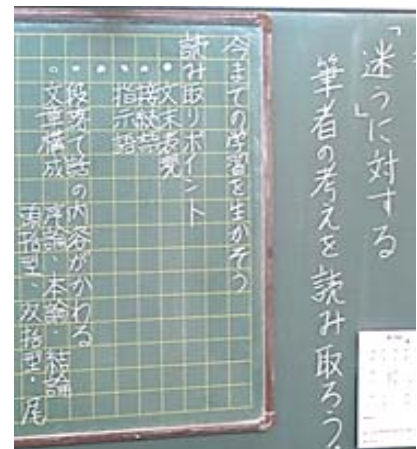 「迷う」に対する
筆者の考えを読み取ろう。
今までの学習を生かそう
読み取りポイント
・文末表現
・接続語
・指示語
・段落で話の内容がかわる
・文章構成 序論・本論・結論
頭括型、双括型・尾